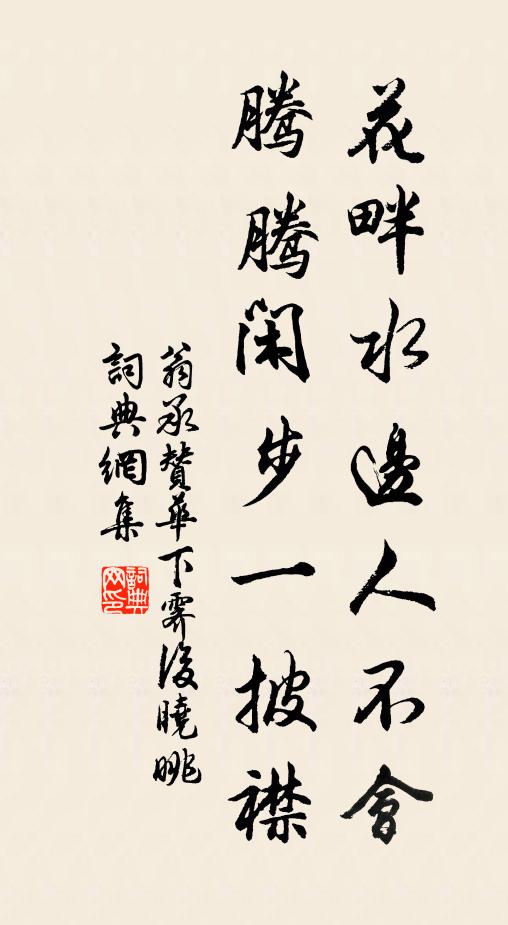 花畔水邊人不會
騰騰閑步一披襟
翁承贊華下霽後曉眺
詞典網集
詞典
网印